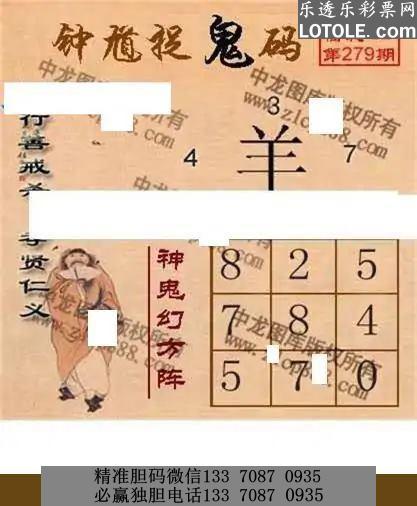 乐透乐彩票网
LOTOLE.COM
钟馗捉鬼码
第279期
中龙图库版权所有
行善戒
贤仁义
3
4 羊 7
神鬼幻方阵
8 2 5
7 8 4
5 7 0
精准胆码微信133 7087 0935
必赢独胆电话133 7087 0935